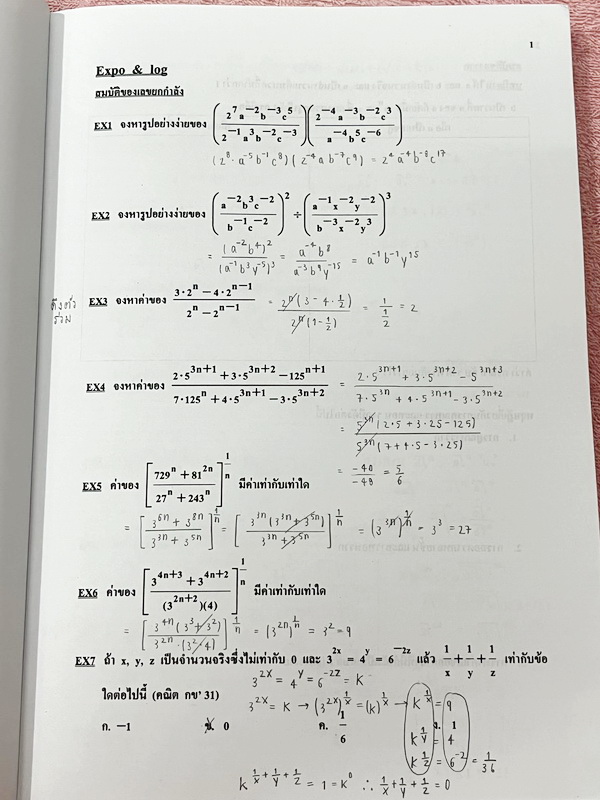 1
Expo & log
สมบัติของเลขยกกำลัง
EX1 จงหารูปอย่างง่ายของ (2⁷a⁻²b⁻³c⁵ / 2⁻¹a³b⁻²c⁻³)(2⁻⁴a⁻³b⁻²c³ / a⁻⁴b⁵c⁻⁶)
(2⁸·a⁻⁵b⁻¹c⁸)(2⁻⁴ab⁻⁷c⁹) = 2⁴a⁻⁴b⁻⁸c¹⁷
EX2 จงหารูปอย่างง่ายของ (a⁻²b³c⁻² / b⁻¹c⁻²)² ÷ (a⁻¹x⁻²y⁻² / b⁻³x⁻²y³)³
= (a⁻²b⁴)² / (a⁻¹b³y⁻⁵)³ = a⁻⁴b⁸ / a⁻³b⁹y⁻¹⁵ = a⁻¹b⁻¹y¹⁵
ดึงตัวร่วม
EX3 จงหาค่าของ (3·2ⁿ − 4·2ⁿ⁻¹) / (2ⁿ − 2ⁿ⁻¹) = 2ⁿ(3 − 4·½) / 2ⁿ(1 − ½) = 1 / ½ = 2
EX4 จงหาค่าของ (2·5³ⁿ⁺¹ + 3·5³ⁿ⁺² − 125ⁿ⁺¹) / (7·125ⁿ + 4·5³ⁿ⁺¹ − 3·5³ⁿ⁺²) = (2·5³ⁿ⁺¹ + 3·5³ⁿ⁺² − 5³ⁿ⁺³) / (7·5³ⁿ + 4·5³ⁿ⁺¹ − 3·5³ⁿ⁺²)
= 5³ⁿ(2·5 + 3·25 − 125) / 5³ⁿ(7 + 4·5 − 3·25)
= −40 / −48 = 5/6
EX5 ค่าของ [(729ⁿ + 81²ⁿ) / (27ⁿ + 243ⁿ)]^(1/n) มีค่าเท่ากับเท่าใด
= [(3⁶ⁿ + 3⁸ⁿ) / (3³ⁿ + 3⁵ⁿ)]^(1/n) = [3³ⁿ(3³ⁿ + 3⁵ⁿ) / (3³ⁿ + 3⁵ⁿ)]^(1/n) = (3³ⁿ)^(1/n) = 3³ = 27
EX6 ค่าของ [(3⁴ⁿ⁺³ + 3⁴ⁿ⁺²) / (3²ⁿ⁺²)(4)]^(1/n) มีค่าเท่ากับเท่าใด
= [3⁴ⁿ(3³ + 3²) / 3²ⁿ·(3²·4)]^(1/n) = (3²ⁿ)^(1/n) = 3² = 9
EX7 ถ้า x, y, z เป็นจำนวนจริงซึ่งไม่เท่ากับ 0 และ 3²ˣ = 4ʸ = 6⁻²ᶻ แล้ว 1/x + 1/y + 1/z เท่ากับข้อ
ใดต่อไปนี้ (คณิต กข' 31)
3²ˣ = 4ʸ = 6⁻²ᶻ = k
3²ˣ = k → (3²ˣ)^(1/x) = (k)^(1/x) → k^(1/x) = 9
ก. −1 ข. 0 ค. 1/6 ง. 1
k^(1/y) = 4
k^(1/z) = 6⁻² = 1/36
k^(1/x + 1/y + 1/z) = 1 = k⁰ ∴ 1/x + 1/y + 1/z = 0